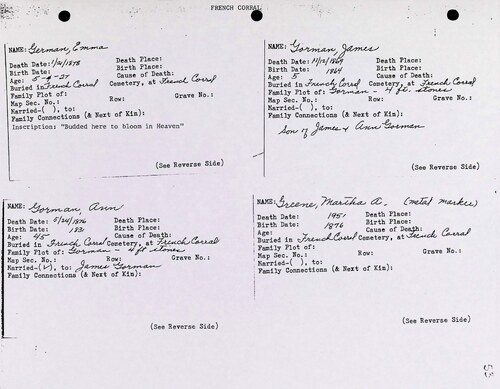 FRENCH CORRAL
NAME: German, Emma
Death Date: 1/16/1878 Death Place:
Birth Date: Birth Place:
Age: 5-9-27 Cause of Death:
Buried in French Corral Cemetery, at French Corral
Family Plot of:
Map Sec. No.: Row: Grave No.:
Married-( ), to:
Family Connections (& Next of Kin):
Inscription: "Budded here to bloom in Heaven"
(See Reverse Side)
NAME: Gorman, James
Death Date: 11/18/1869 Death Place:
Birth Date: 1864 Birth Place:
Age: 5 Cause of Death:
Buried in French Corral Cemetery, at French Corral
Family Plot of: Gorman - 4 ft. stones
Map Sec. No.: Row: Grave No.:
Married-( ), to:
Family Connections (& Next of Kin):
Son of James & Ann Gorman
(See Reverse Side)
NAME: Gorman, Ann
Death Date: 5/24/1876 Death Place:
Birth Date: 1831 Birth Place:
Age: 45 Cause of Death:
Buried in French Corral Cemetery, at French Corral
Family Plot of: Gorman - 4 ft stones
Map Sec. No.: Row: Grave No.:
Married-(✓), to: James Gorman
Family Connections (& Next of Kin):
(See Reverse Side)
NAME: Greene, Martha A. (metal marker)
Death Date: 1951 Death Place:
Birth Date: 1876 Birth Place:
Age: Cause of Death:
Buried in French Corral Cemetery, at French Corral
Family Plot of:
Map Sec. No.: Row: Grave No.:
Married-( ), to:
Family Connections (& Next of Kin):
(See Reverse Side)
53